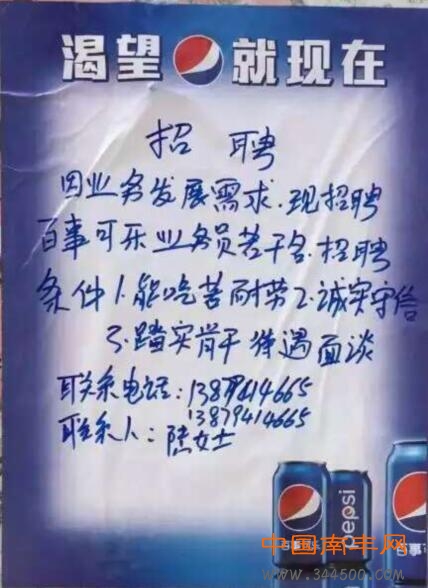 渴望 就现在
招聘
因业务发展需求.现招聘
百事可乐业务员若干名.招聘
条件1.能吃苦耐劳2.诚实守信
3.踏实肯干 待遇面谈
联系电话:13879414665
13879414665
联系人:陆女士
百事可乐
pepsi
百事
中国南丰网
www.344500.com